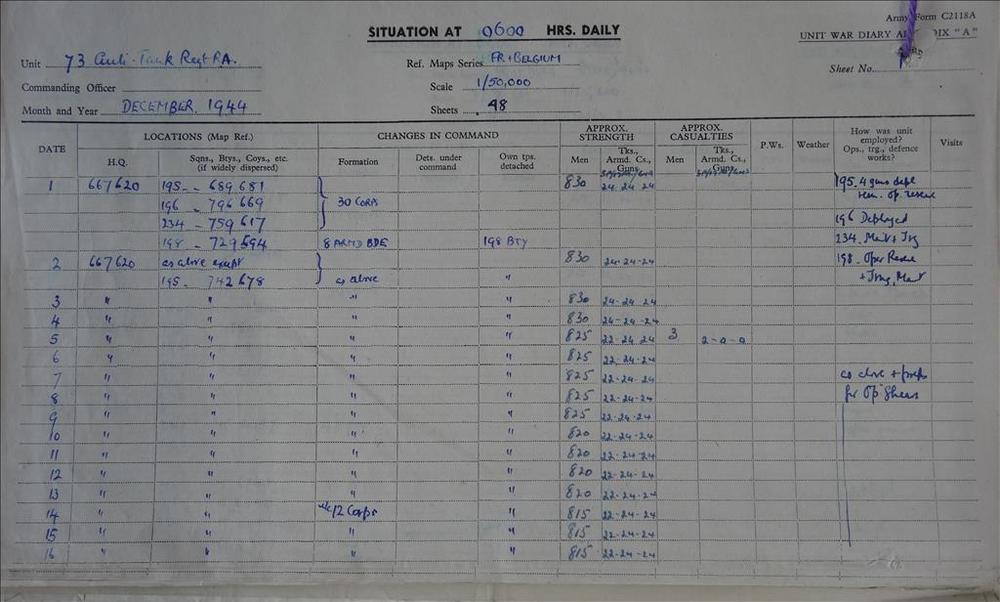 Army Form C2118A
SITUATION AT 0600 HRS. DAILY
UNIT WAR DIARY "A"
Unit 73 Anti-Tank Regt RA. Ref. Maps Series FR & BELGIUM Sheet No. 1
Commanding Officer Scale 1/50,000
Month and Year DECEMBER 1944 Sheets 48
DATE LOCATIONS (Map Ref.) CHANGES IN COMMAND APPROX. STRENGTH APPROX. CASUALTIES P.Ws. Weather How was unit employed? Ops., trg., defence works? Visits
H.Q. Sqns., Btys., Coys., etc. (if widely dispersed) Formation Dets. under command Own tps. detached Men Tks., Armd. Cs., Guns Men Tks., Armd. Cs., Guns
1 667620 195 - 689681 830 24.24.24 195. 4 guns depl
196 - 796669 30 CORPS rem. op. reserve
234 - 759617 196 Deployed
198 - 729594 8 ARMD BDE 198 BTY 234. Maint + Trg
2 667620 as above except 830 24.24.24 198. Oper Reserve
195 - 742678 as above " + Trng, Maint
3 " " " " 830 24-24 24
4 " " " " 830 24-24-24
5 " " " " 825 22.24 24 3 2-0-0
6 " " " " 825 22.24.24
7 " " " " 825 22-24-24 as above + preps
8 " " " " 825 22-24-24 for Op Shears
9 " " " " 825 22-24-24
10 " " " " 820 22-24-24
11 " " " " 820 22-24-24
12 " " " " 820 22-24-24
13 " " " " 820 22-24-24
14 " " 12 Corps " 815 22-24-24
15 " " " " 815 22-24-24
16 " " " " 815 22-24-24